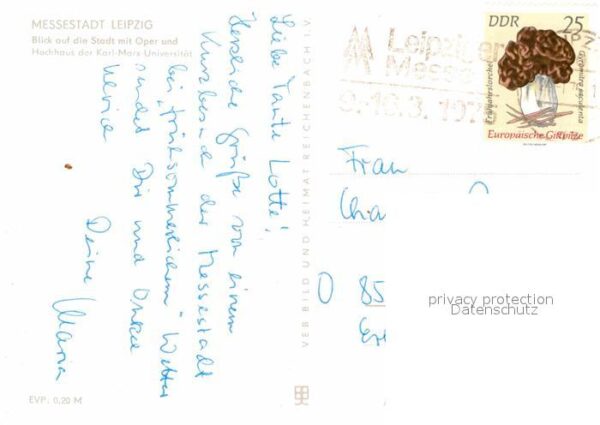 MESSESTADT LEIPZIG
Blick auf die Stadt mit Oper und
Hochhaus der Karl-Marx-Universität
Liebe Tante Lotte!
Herzliche Grüße von einem
Kurzbesuch der Messestadt
bei „frühsommerlichem“ Wetter
sendet Dir und Onkel
Deine Maria
EVP: 0,20 M
VEB BILD UND HEIMAT REICHENBACH I. V.
Leipziger
Messe
DDR 25
Frühjahrslorchel
Gyromitra esculenta
Europäische Giftpilze
Frau
85
privacy protection
Datenschutz